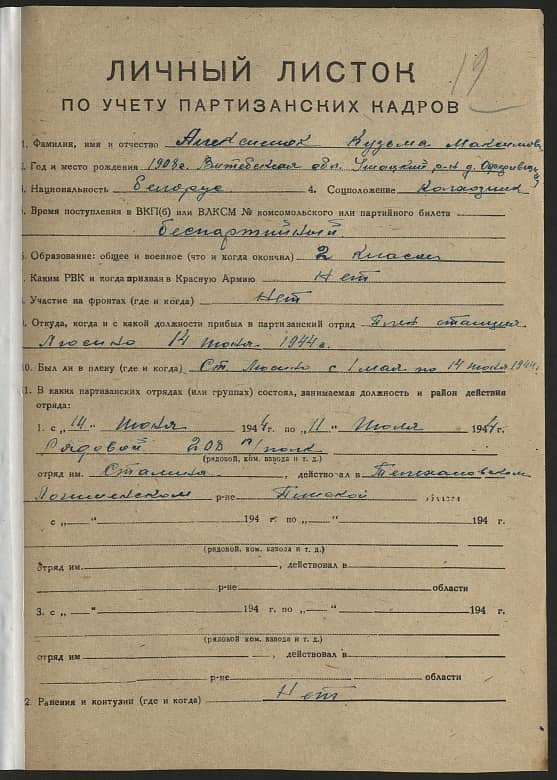 19
ЛИЧНЫЙ ЛИСТОК
ПО УЧЕТУ ПАРТИЗАНСКИХ КАДРОВ
1. Фамилия, имя и отчество Кузьма Максимов.
2. Год и место рождения 1908 г. Витебская обл. Ушацкий р-н д.
3. Национальность белорус 4. Соцположение Колхозник
5. Время поступления в ВКП(б) или ВЛКСМ № комсомольского или партийного билета
беспартийный
6. Образование: общее и военное (что и когда окончил) 2 класса
7. Каким РВК и когда призван в Красную Армию Нет
8. Участие на фронтах (где и когда) Нет
9. Откуда, когда и с какой должности прибыл в партизанский отряд Плен станция
Люсино 14 июня 1944 г.
10. Был ли в плену (где и когда) Ст. Люсино с 1 мая по 14 июня 1944 г.
11. В каких партизанских отрядах (или группах) состоял, занимаемая должность и район действия
отряда:
1. с „14" Июня 1944 г. по „11" Июля 1944 г.
Рядовой 208 п/полк
(рядовой, ком. взвода и т. д.)
отряд им. Сталина, действовал в Телехановском
Логишенском р-не Пинской области
с „ — " 194 г. по „ — " 194 г.
(рядовой, ком. взвода и т. д.)
отряд им. , действовал в
р-не области
3. с „ — " 194 г. по „ — " 194 г.
(рядовой ком. взвода и т. д.)
отряд им , действовал в
р-не области
12. Ранения и контузии (где и когда) Нет